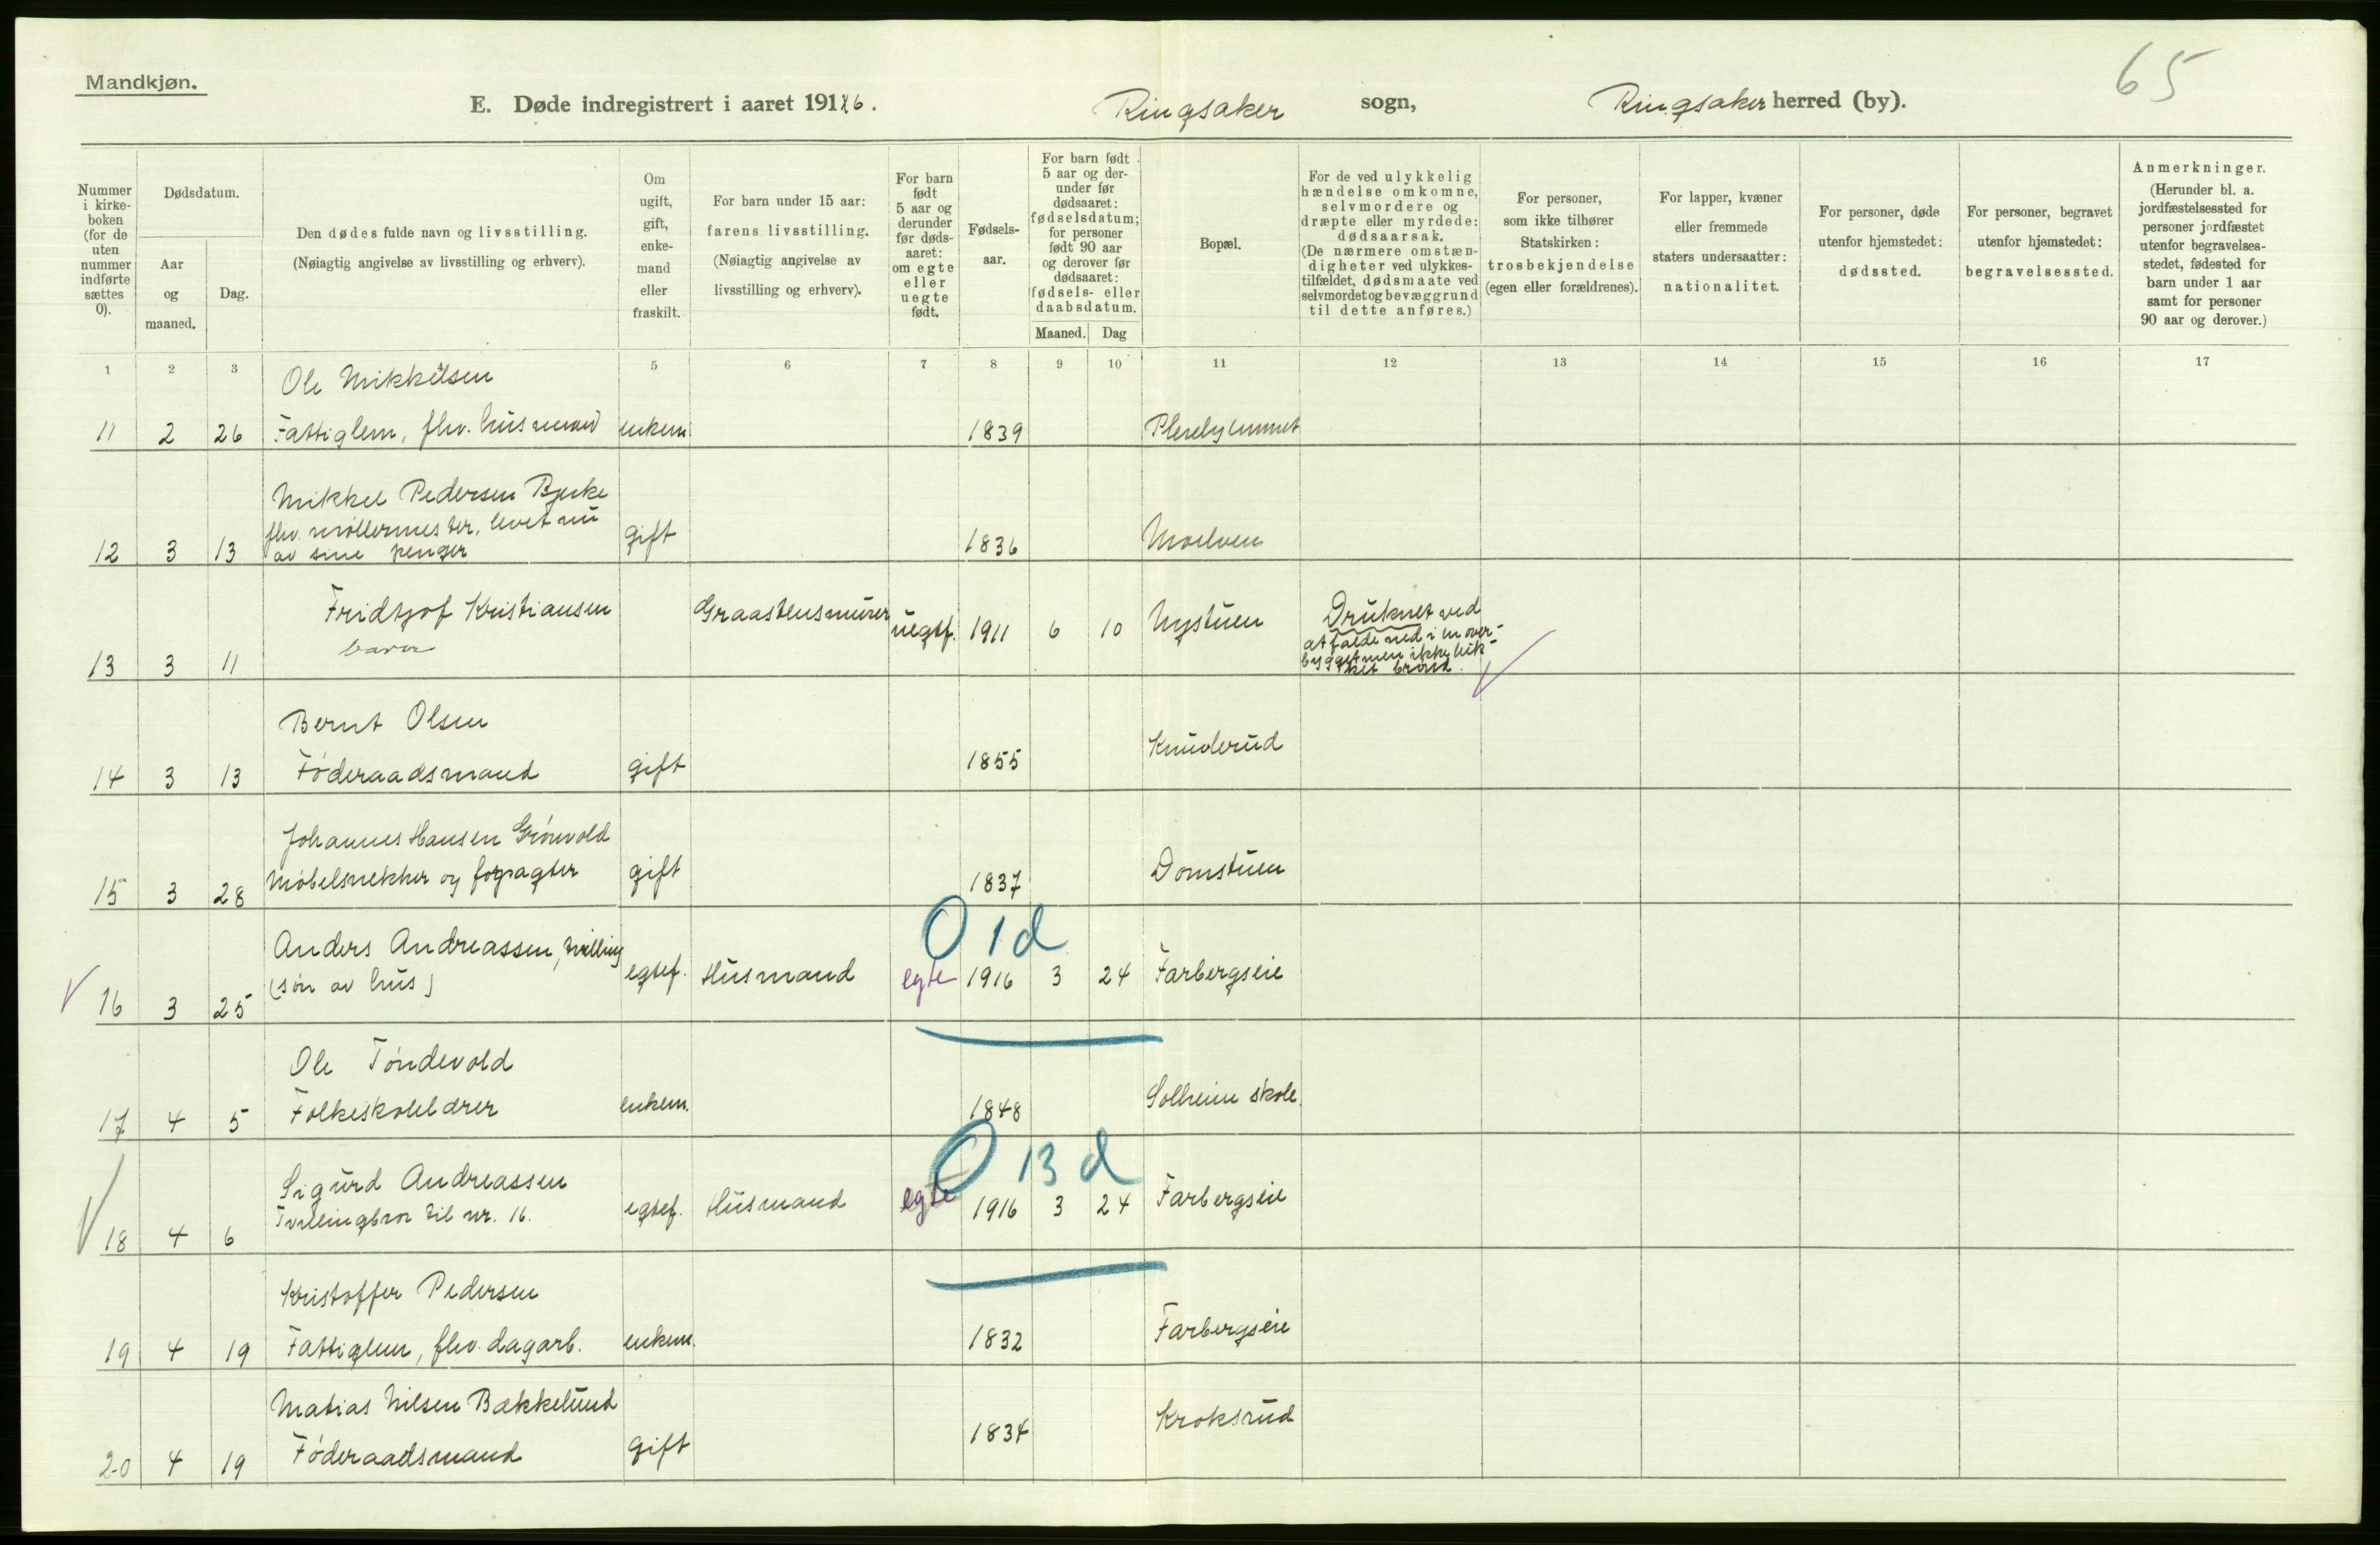 Mandkjøn.
65
E. Døde indregistrert i aaret 1916. Ringsaker sogn, Ringsaker herred (by).
Nummer i kirke-boken (for de uten nummer indførte sættes 0).
Dødsdatum.
Aar og maaned.
Dag.
Den dødes fulde navn og livsstilling.
(Nøiagtig angivelse av livsstilling og erhverv).
Om ugift, gift, enke-mand eller fraskilt.
For barn under 15 aar: farens livsstilling. (Nøiagtig angivelse av livsstilling og erhverv).
For barn født 5 aar og derunder før døds-aaret: om egte eller uegte født.
Fødsels-aar.
For barn født 5 aar og der-under før dødsaaret: fødselsdatum; for personer født 90 aar og derover før dødsaaret: fødsels- eller daabsdatum.
Maaned. Dag
Bopæl.
For de ved ulykkelig hændelse omkomne, selvmordere og dræpte eller myrdede: dødsaarsak. (De nærmere omstæn-digheter ved ulykkes-tilfældet, dødsmaate ved selvmordet og bevæggrund til dette anføres.)
For personer, som ikke tilhører Statskirken: trosbekjendelse (egen eller forældrenes).
For lapper, kvæner eller fremmede staters undersaatter: nationalitet.
For personer, døde utenfor hjemstedet: dødssted.
For personer, begravet utenfor hjemstedet: begravelsessted.
Anmerkninger. (Herunder bl. a. jordfæstelsessted for personer jordfæstet utenfor begravelses-stedet, fødested for barn under 1 aar samt for personer 90 aar og derover.)
1 2 3 5 6 7 8 9 10 11 12 13 14 15 16 17
Ole Mikkelsen
11 2 26 Fattiglem, fhv. husmand enkem. 1839
Mikkel Pedersen Bjerke
fhv. møllermester, levet nu
12 3 13 av sine penger gift 1836 Moelven
Fridtjof Kristiansen Graastensmurer uegtef. 1911 6 10 Nystuen Druknet ved
at falde ned i en over-
bygget men ikke luk-
ket brønd.
13 3 11 barn
Bernt Olsen
14 3 13 Føderaadsmand gift 1855 Knuderud
Johannes Hansen Grønvold
15 3 28 Møbelsnekker og forpagter gift 1837 Domstuen
0 1 d
Anders Andreassen, tvilling
16 3 25 (søn av hus) egtef. Husmand egte 1916 3 24 Farbergseie
Ole Tøndevold
17 4 5 Folkeskolelærer enkem. 1848 Solheim skole.
0 13 d
Sigurd Andreassen
18 4 6 Tvillingbror til nr. 16. egtef. Husmand egte 1916 3 24 Farbergseie
Kristoffer Pedersen
19 4 19 Fattiglem, fhv. dagarb. enkem. 1832 Farbergseie
Matias Nilsen Bækkelund
20 4 19 Føderaadsmand gift 1834 Kroksrud